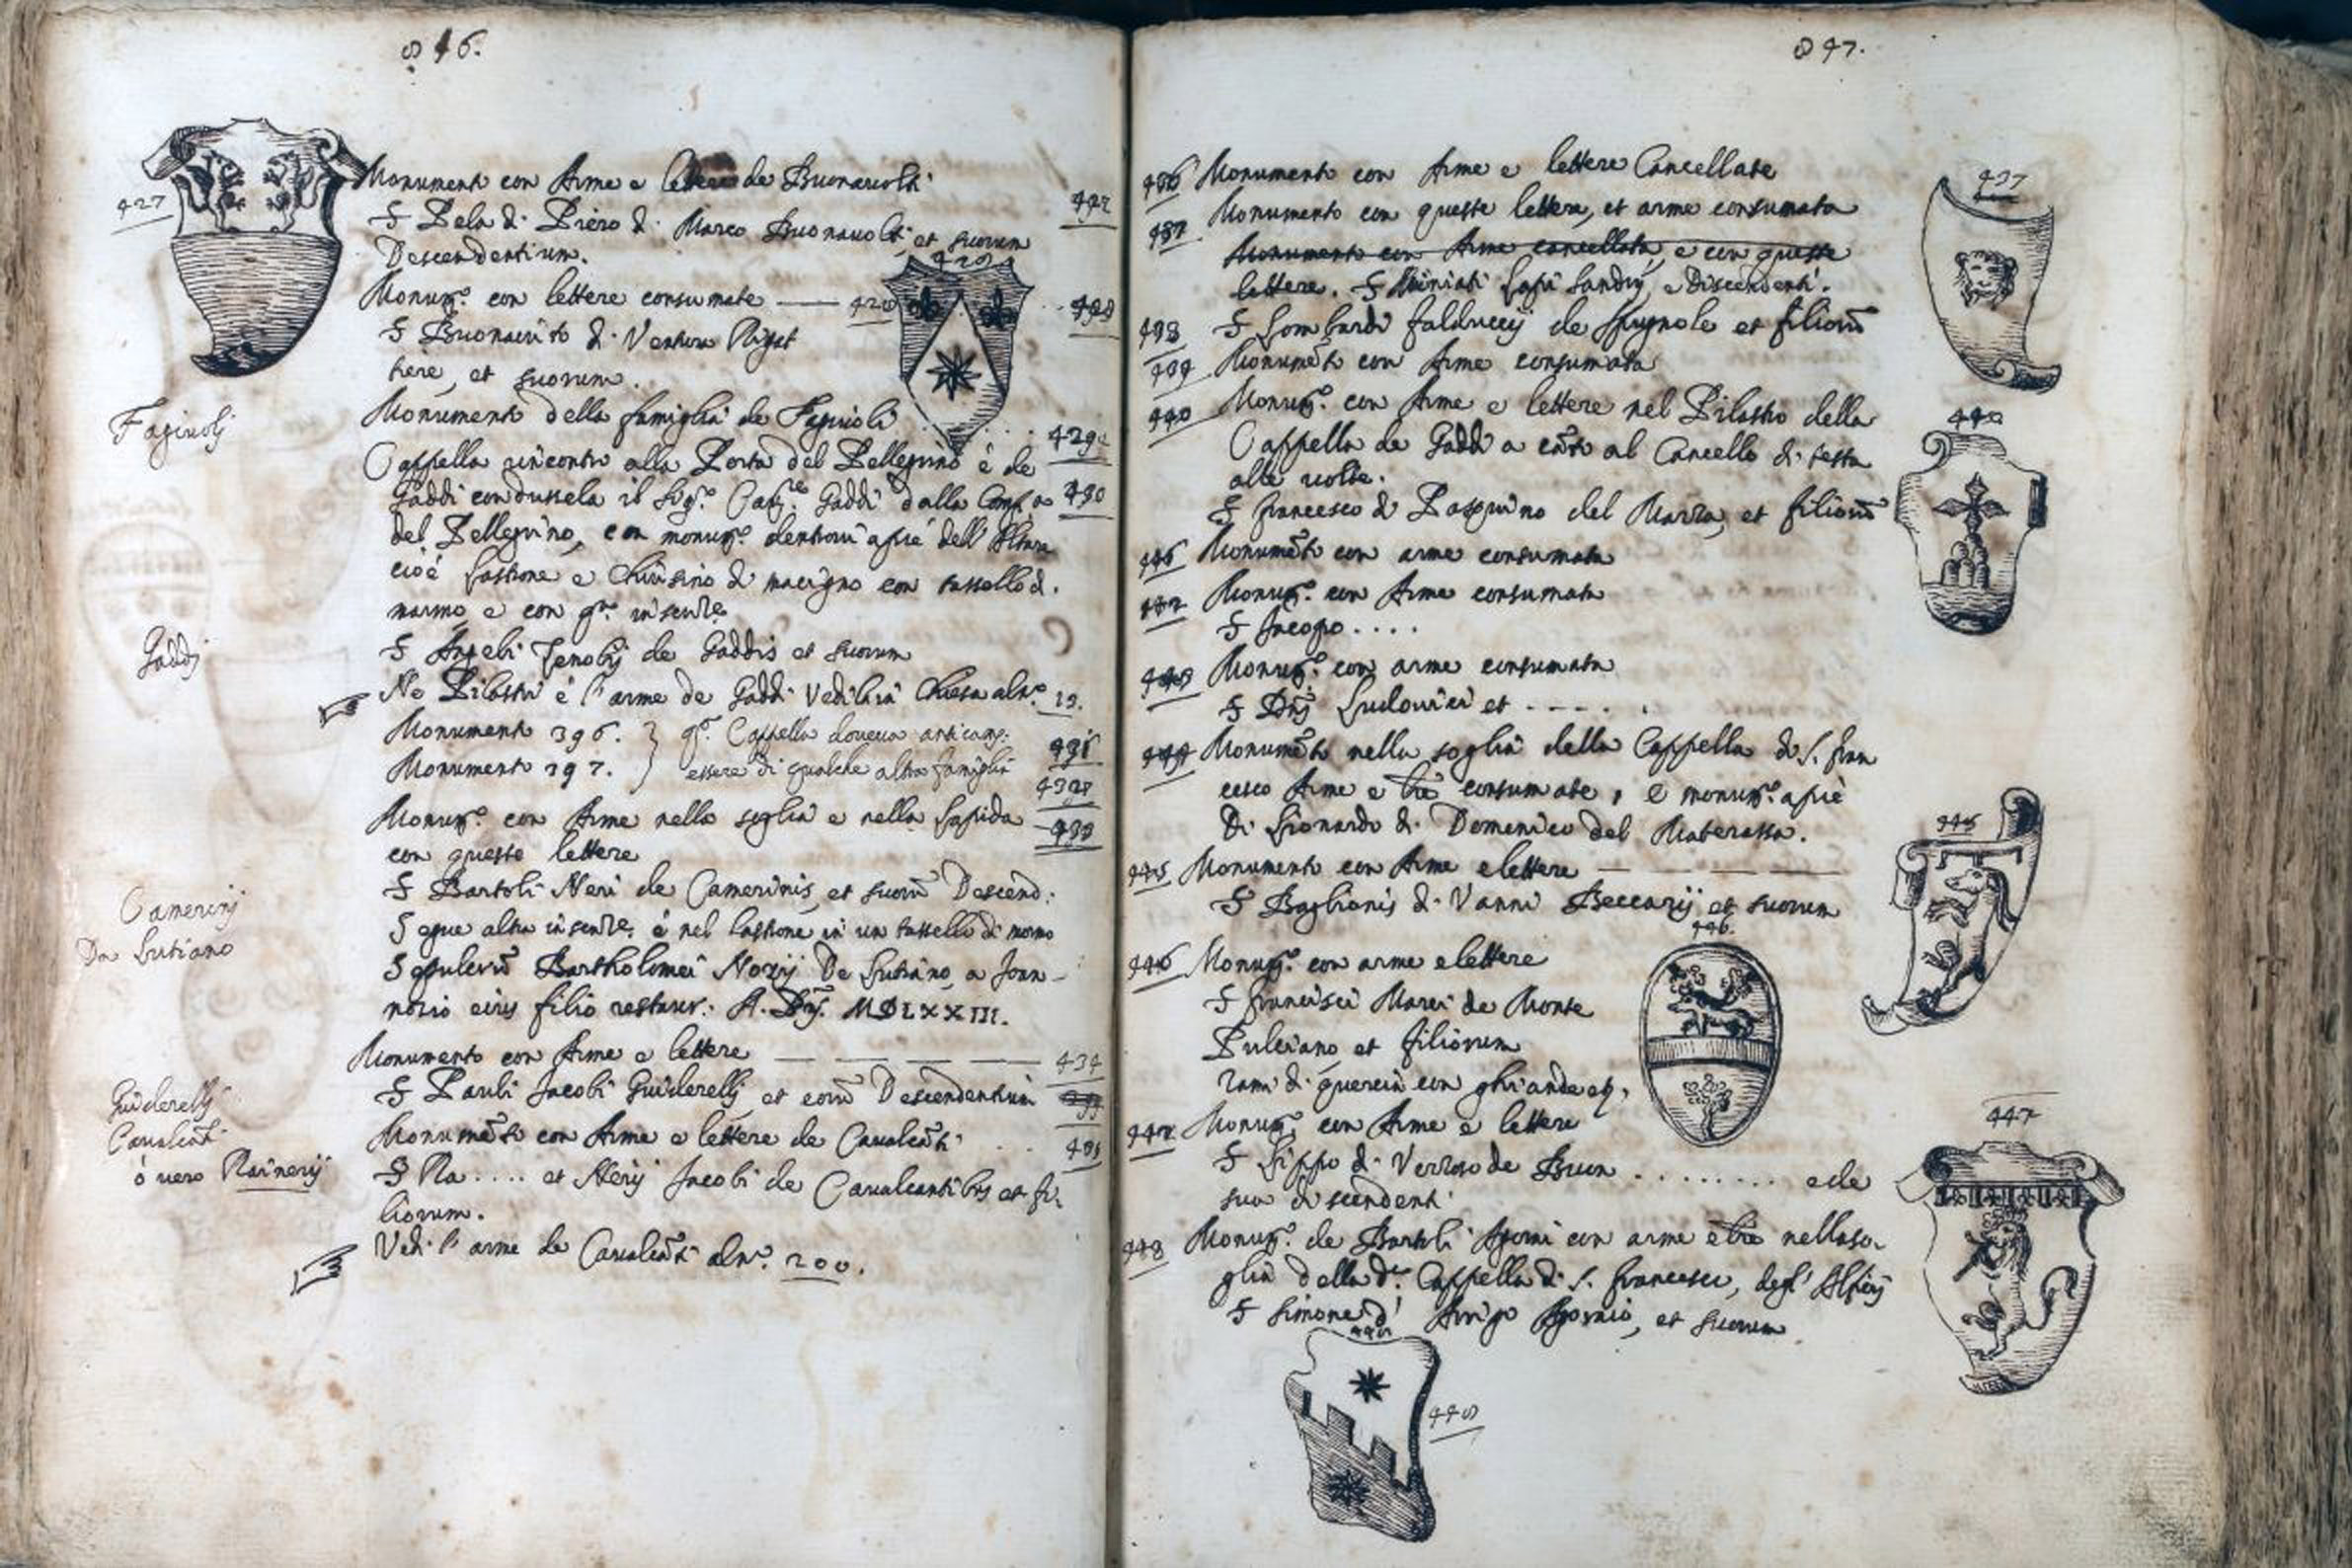 846.
427
Monumento con Arme e lettere de Buonavolti
S Bela di Piero di Marco Buonavolti et suorum
Descendentium.
Monum.to con lettere consumate 428
S Buonavito di Ventura Rigat
tiere, et suorum.
Fagiuolj
Monumento della famiglia de Fagiuoli 429
Cappella rincontro alla Porta del Pellegrino è de
Gaddi condussela il Sig.re Cav.re Gaddi dalla 430
del Pellegrino, con monum.to dentrovi a piè dell'Altare
cioè lastrone e chiusino di macigno con tassello di
marmo e con q.ta inscrizz.e
Gaddj
S Angeli Zenobij de Gaddis et suorum
Ne Pilastri è l'arme de Gaddi Vedi in Chiesa al n.o 19.
Monumento 396. } q.a Cappella doveva anticam: 431
Monumento 397. } essere di qualche altra famiglia
432
Monum.to con Arme nella soglia e nella lapida 433
con queste lettere
Camerinj
Da Lutiano
S Bartoli Neri de Camerinis, et suorū Descend:
Segue altra inscrizz.e è nel lastrone in un tassello di marmo
Sepulcrū Bartholomei Norij De Lutiano, a Joan-
notio eius filio restaur: A. Dnj. MDLXXIII.
Monumento con Arme e lettere 434
Guiderellj
S Pauli Jacobi Guiderellj et eorū Descendentium
Cavalcāti
ò vero Rainerij
Monumēto con Arme e lettere de Cavalcāti 435
S Ra.... et Nerij Jacobi de Cavalcantibus et fi.
liorum.
Vedi l'arme de Cavalcāti al n.o 200.
847.
436 Monumento con Arme e lettere Cancellate
437 Monumento con queste lettere, et arme consumata
Monumento con Arme cancellata, e con queste
lettere. S Miniati Lapi Landij e Discendenti.
438 S Lombardi Falduccij de Spugnole et filiorū
439 Monumēto con Arme consumata
440 Monum.to con Arme e lettere nel Pilastro della
Cappella de Gaddi a cāto al Cancello di testa
alle volte.
S Francesco di Pasquino del Mazza, et filiorū
Monumēto con arme consumata
442 Monum.to con Arme consumata
S Jacopo....
443 Monum.to con arme consumata
S Dnj Ludovici et ....
444 Monumēto nella soglia della Cappella di S. Fran
cesco Arme e lre consumate, e monum.to a piè
Di Lionardo di Domenico del Materassa.
445 Monumento con Arme e lettere
S Baglionis di Vanni Beccarij et suorum
446 Monum.to con arme e lettere
S Francisci Marci de Monte
Pulciano et filiorum
rami di quercia con ghiande
447 Monum.to con Arme e lettere
S Lippo di Verzoso de Buon ........ e de
suoi discendenti
448 Monum.to de Bartoli con arme e lre nella so-
glia della d.a Cappella di S. Francesco,
S Simone d' Arrigo et suorum
437
440
445
446.
447
448
448